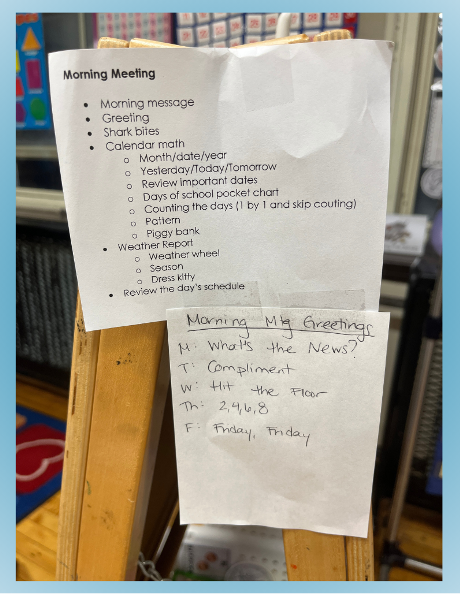 Morning Meeting
• Morning message
• Greeting
• Shark bites
• Calendar math
o Month/date/year
o Yesterday/Today/Tomorrow
o Review important dates
o Days of school pocket chart
o Counting the days (1 by 1 and skip couting)
o Pattern
o Piggy bank
• Weather Report
o Weather wheel
o Season
o Dress kitty
• Review the day's schedule
Morning Mtg Greetings
M: What's the News?
T: Compliment
W: Hit the Floor
Th: 2,4,6,8
F: Friday, Friday